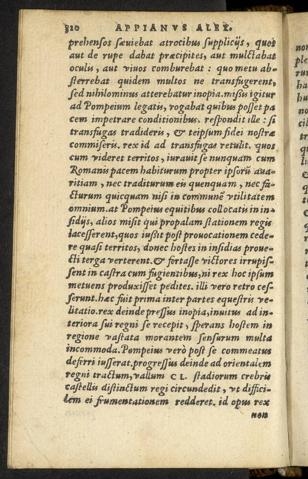 320 APPIANVS ALEX.
prehensos sæuiebat atrocibus supplicijs, quos
aut de rupe dabat præcipites, aut mulctabat
oculis, aut viuos comburebat: quo metu ab-
sterrebat quidem multos ne transfugerent,
sed nihilominus atterebatur inopia. missis igitur
ad Pompeium legatis, rogabat quibus posset pa
cem impetrare conditionibus. respondit ille: si
transfugas tradideris, & teipsum fidei nostræ
commiseris. rex id ad transfugas retulit. quos
cum videret territos, iurauit se nunquam cum
Romanis pacem habiturum propter ipsorū aua-
ritiam, nec traditurum eis quenquam, nec fa-
cturum quicquam nisi in communē vtilitatem
omnium. at Pompeius equitibus collocatis in in-
sidijs, alios misit qui propalam stationem regis
lacesserent, quos iussit post prouocationem cede-
re quasi territos, donec hostes in insidias proue-
cti terga verterent. & fortasse victores irrupis-
sent in castra cum fugientibus, ni rex hoc ipsum
metuens produxisset pedites. illi vero retro ces-
serunt. hæc fuit prima inter partes equestris ve-
litatio. rex deinde pressus inopia, inuitus ad in-
teriora sui regni se recepit, sperans hostem in
regione vastata morantem sensurum multa
incommoda. Pompeius verò post se commeatus
deferri iusserat. progressus deinde ad orientalem
regni tractum, vallum CL. stadiorum crebris
castellis distinctum regi circundedit, vt diffici-
lem ei frumentationem redderet. id opus rex
non